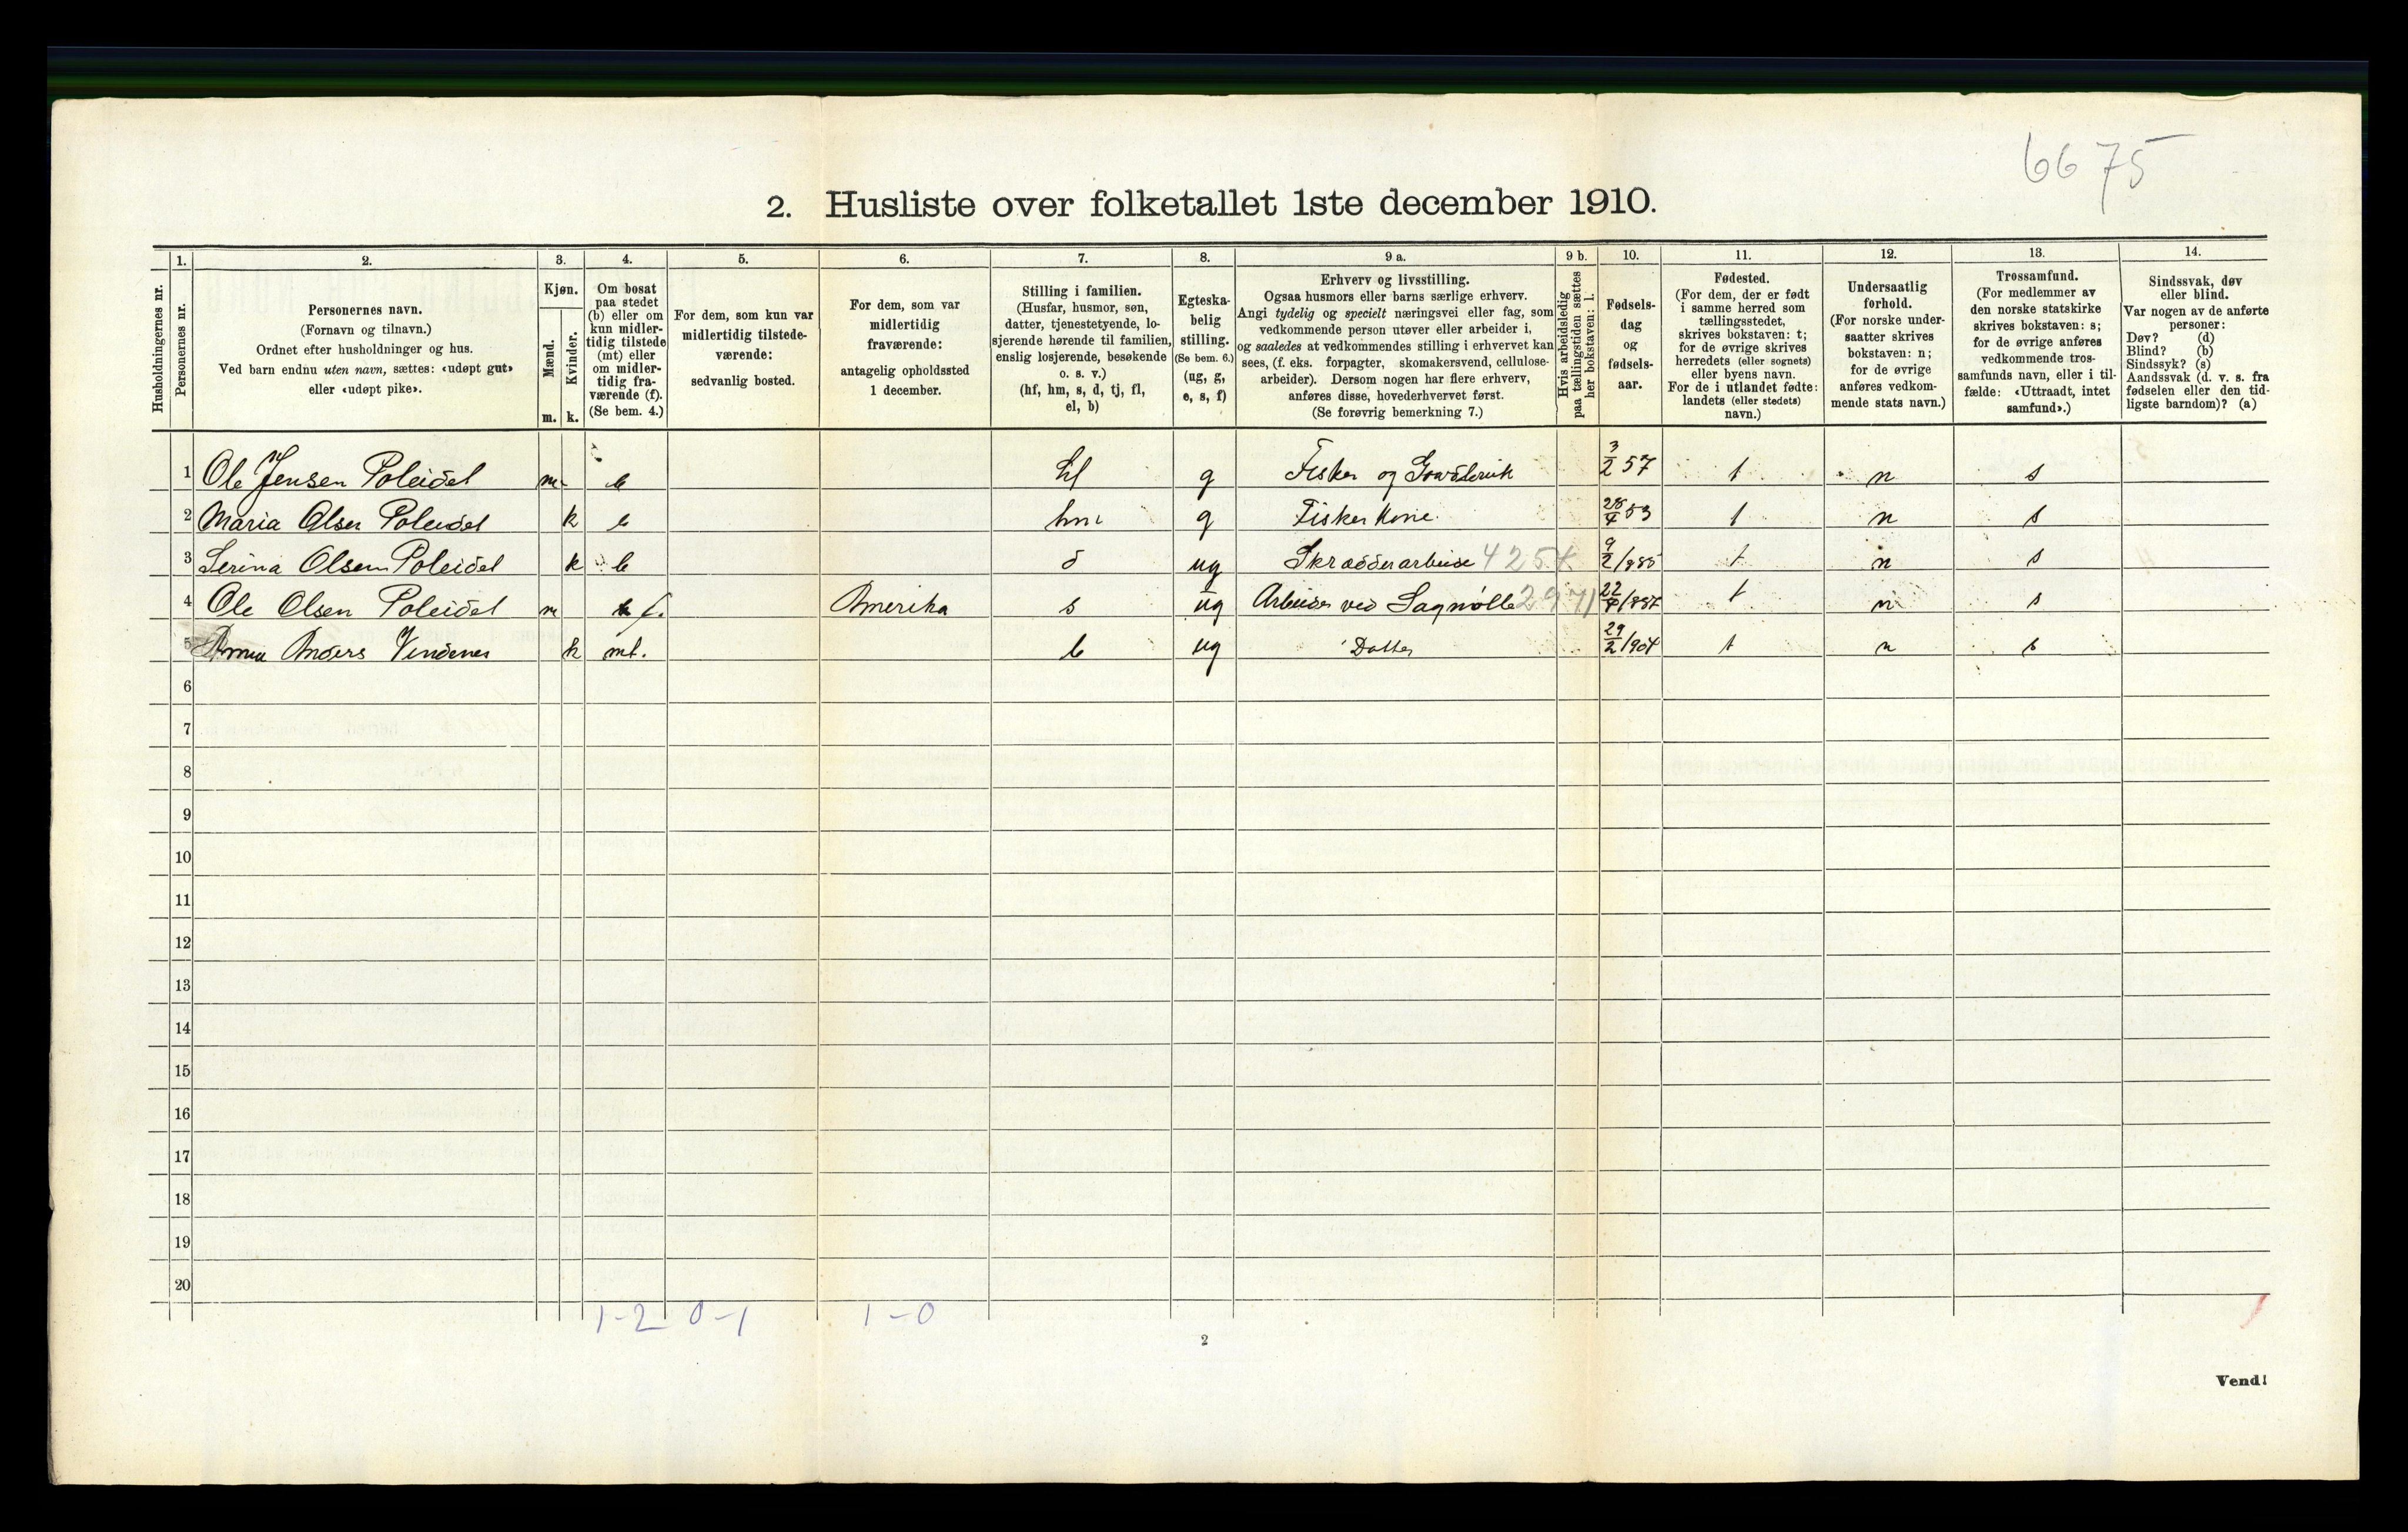 6675
2. Husliste over folketallet 1ste december 1910.
Husholdningernes nr.
1. Personernes nr.
2. Personernes navn.
(Fornavn og tilnavn.)
Ordnet efter husholdninger og hus.
Ved barn endnu uten navn, sættes: «udøpt gut»
eller «udøpt pike».
3. Kjøn.
Mænd. m.
Kvinder. k.
4. Om bosat
paa stedet
(b) eller om
kun midler-
tidig tilstede
(mt) eller
om midler-
tidig fra-
værende (f).
(Se bem. 4.)
5. For dem, som kun var
midlertidig tilstede-
værende:
sedvanlig bosted.
6. For dem, som var
midlertidig
fraværende:
antagelig opholdssted
1 december.
7. Stilling i familien.
(Husfar, husmor, søn,
datter, tjenestetyende, lo-
sjerende hørende til familien,
enslig losjerende, besøkende
o. s. v.)
(hf, hm, s, d, tj, fl,
el, b)
8. Egteska-
belig
stilling.
(Se bem. 6.)
(ug, g,
e, s, f)
9 a. Erhverv og livsstilling.
Ogsaa husmors eller barns særlige erhverv.
Angi tydelig og specielt næringsvei eller fag, som
vedkommende person utøver eller arbeider i,
og saaledes at vedkommendes stilling i erhvervet kan
sees, (f. eks. forpagter, skomakersvend, cellulose-
arbeider). Dersom nogen har flere erhverv,
anføres disse, hovederhvervet først.
(Se forøvrig bemerkning 7.)
9 b. Hvis arbeidsledig
paa tællingstiden sættes
her bokstaven: l.
10. Fødsels-
dag
og
fødsels-
aar.
11. Fødested.
(For dem, der er født
i samme herred som
tællingsstedet,
skrives bokstaven: t;
for de øvrige skrives
herredets (eller sognets)
eller byens navn.
For de i utlandet fødte:
landets (eller stedets)
navn.)
12. Undersaatlig
forhold.
(For norske under-
saatter skrives
bokstaven: n;
for de øvrige
anføres vedkom-
mende stats navn.)
13. Trossamfund.
(For medlemmer av
den norske statskirke
skrives bokstaven: s;
for de øvrige anføres
vedkommende tros-
samfunds navn, eller i til-
fælde: «Uttraadt, intet
samfund».)
14. Sindssvak, døv
eller blind.
Var nogen av de anførte
personer:
Døv? (d)
Blind? (b)
Sindssyk? (s)
Aandssvak (d. v. s. fra
fødselen eller den tid-
ligste barndom)? (a)
1 Ole Jensen Poleidet m b hf g Fisker og 3/2 57 t n s
2 Maria Olsen Poleidet k b hm g Fisker Kone 28/4 53 t n s
3 Serina Olsen Poleidet k b d ug Skrædderarbeide 4254 9/2/885 t n s
4 Ole Olsen Poleidet m f. Amerika s ug Arbeider ved Sagmølle 2971 22/7/887 t n s
5 Anders Vindenes k mt. b ug Datter 29/2/904 t n s
6
7
8
9
10
11
12
13
14
15
16
17
18
19
20
1-2 0-1 1-0
2
Vend!